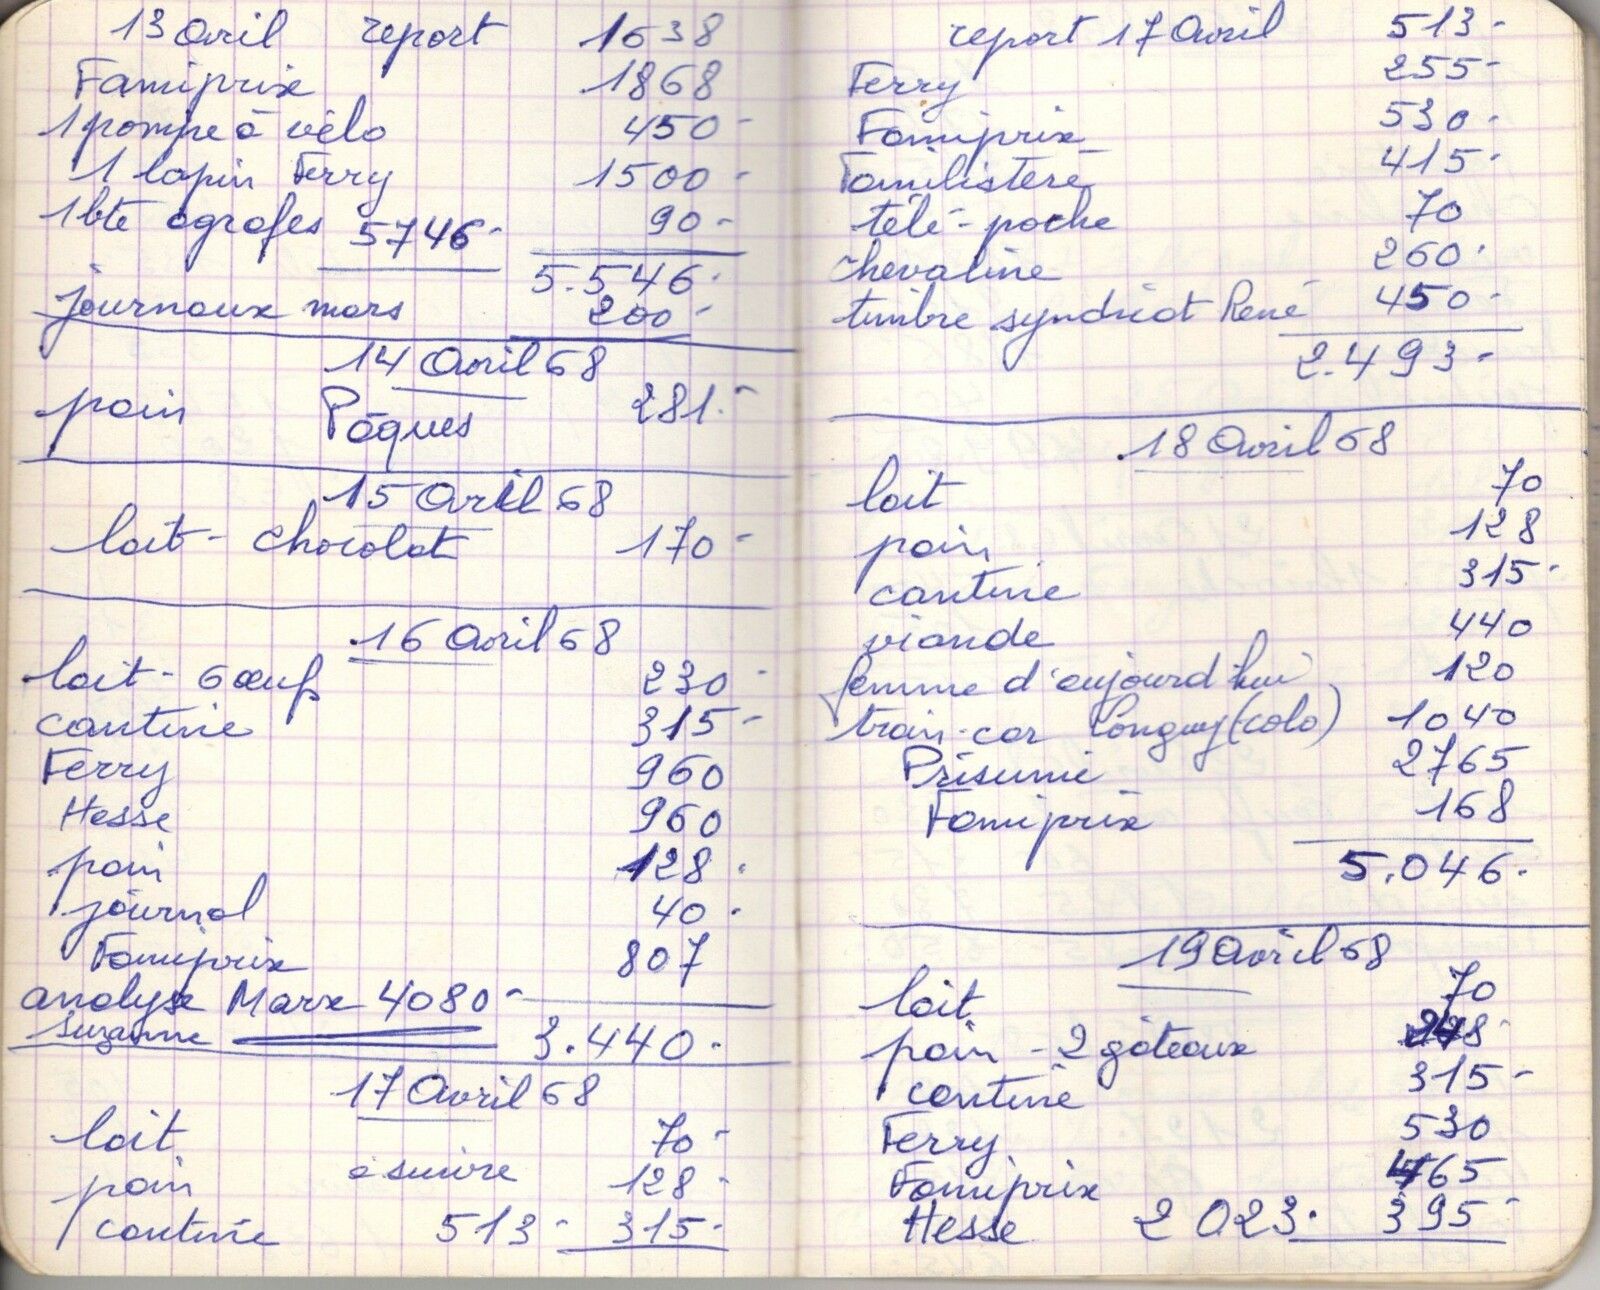 13 Avril report 1638
Famiprix 1868
1 pompe à vélo 450-
1 lapin Ferry 1500-
1 bte agrafes 5746- 90-
5.546.
journaux mars 200-
14 Avril 68
pain Pâques 281.-
15 Avril 68
lait - chocolat 170-
16 Avril 68
lait - 6 œufs 230-
cantine 315-
Ferry 960
Hesse 960
pain 128.
journal 40.
Famiprix 807
analyse Marx 4080-
Suzanne 3.440.
17 Avril 68
lait 70-
pain à suivre 128-
cantine 513- 315-
report 17 Avril 513-
Ferry 255-
Famiprix 530.
Familistère 415.
télé-poche 70
chevaline 260.
timbre syndicat René 450-
2.493-
18 Avril 68
lait 70
pain 128
cantine 315-
viande 440
femme d'aujourd'hui 120
train-car Longwy (colo) 1040
Prisunic 2765
Famiprix 168
5.046.
19 Avril 68
lait 70
pain - 2 gâteaux
cantine 315-
Ferry 530
Famiprix 465
Hesse 2023. 395-